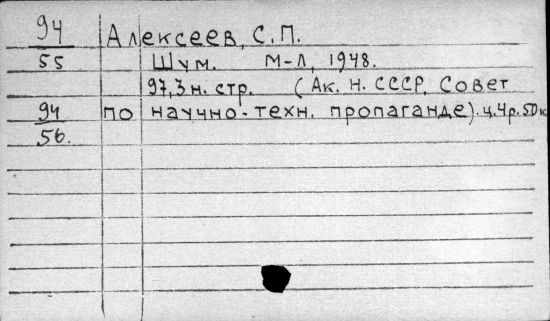 94 Алексеев, С.П.
55 Шум. М-Л, 1948.
97,3 н. стр. (Ак. н. СССР, Совет
94 по научно-техн. пропаганде). ц. 4р. 50к
56.